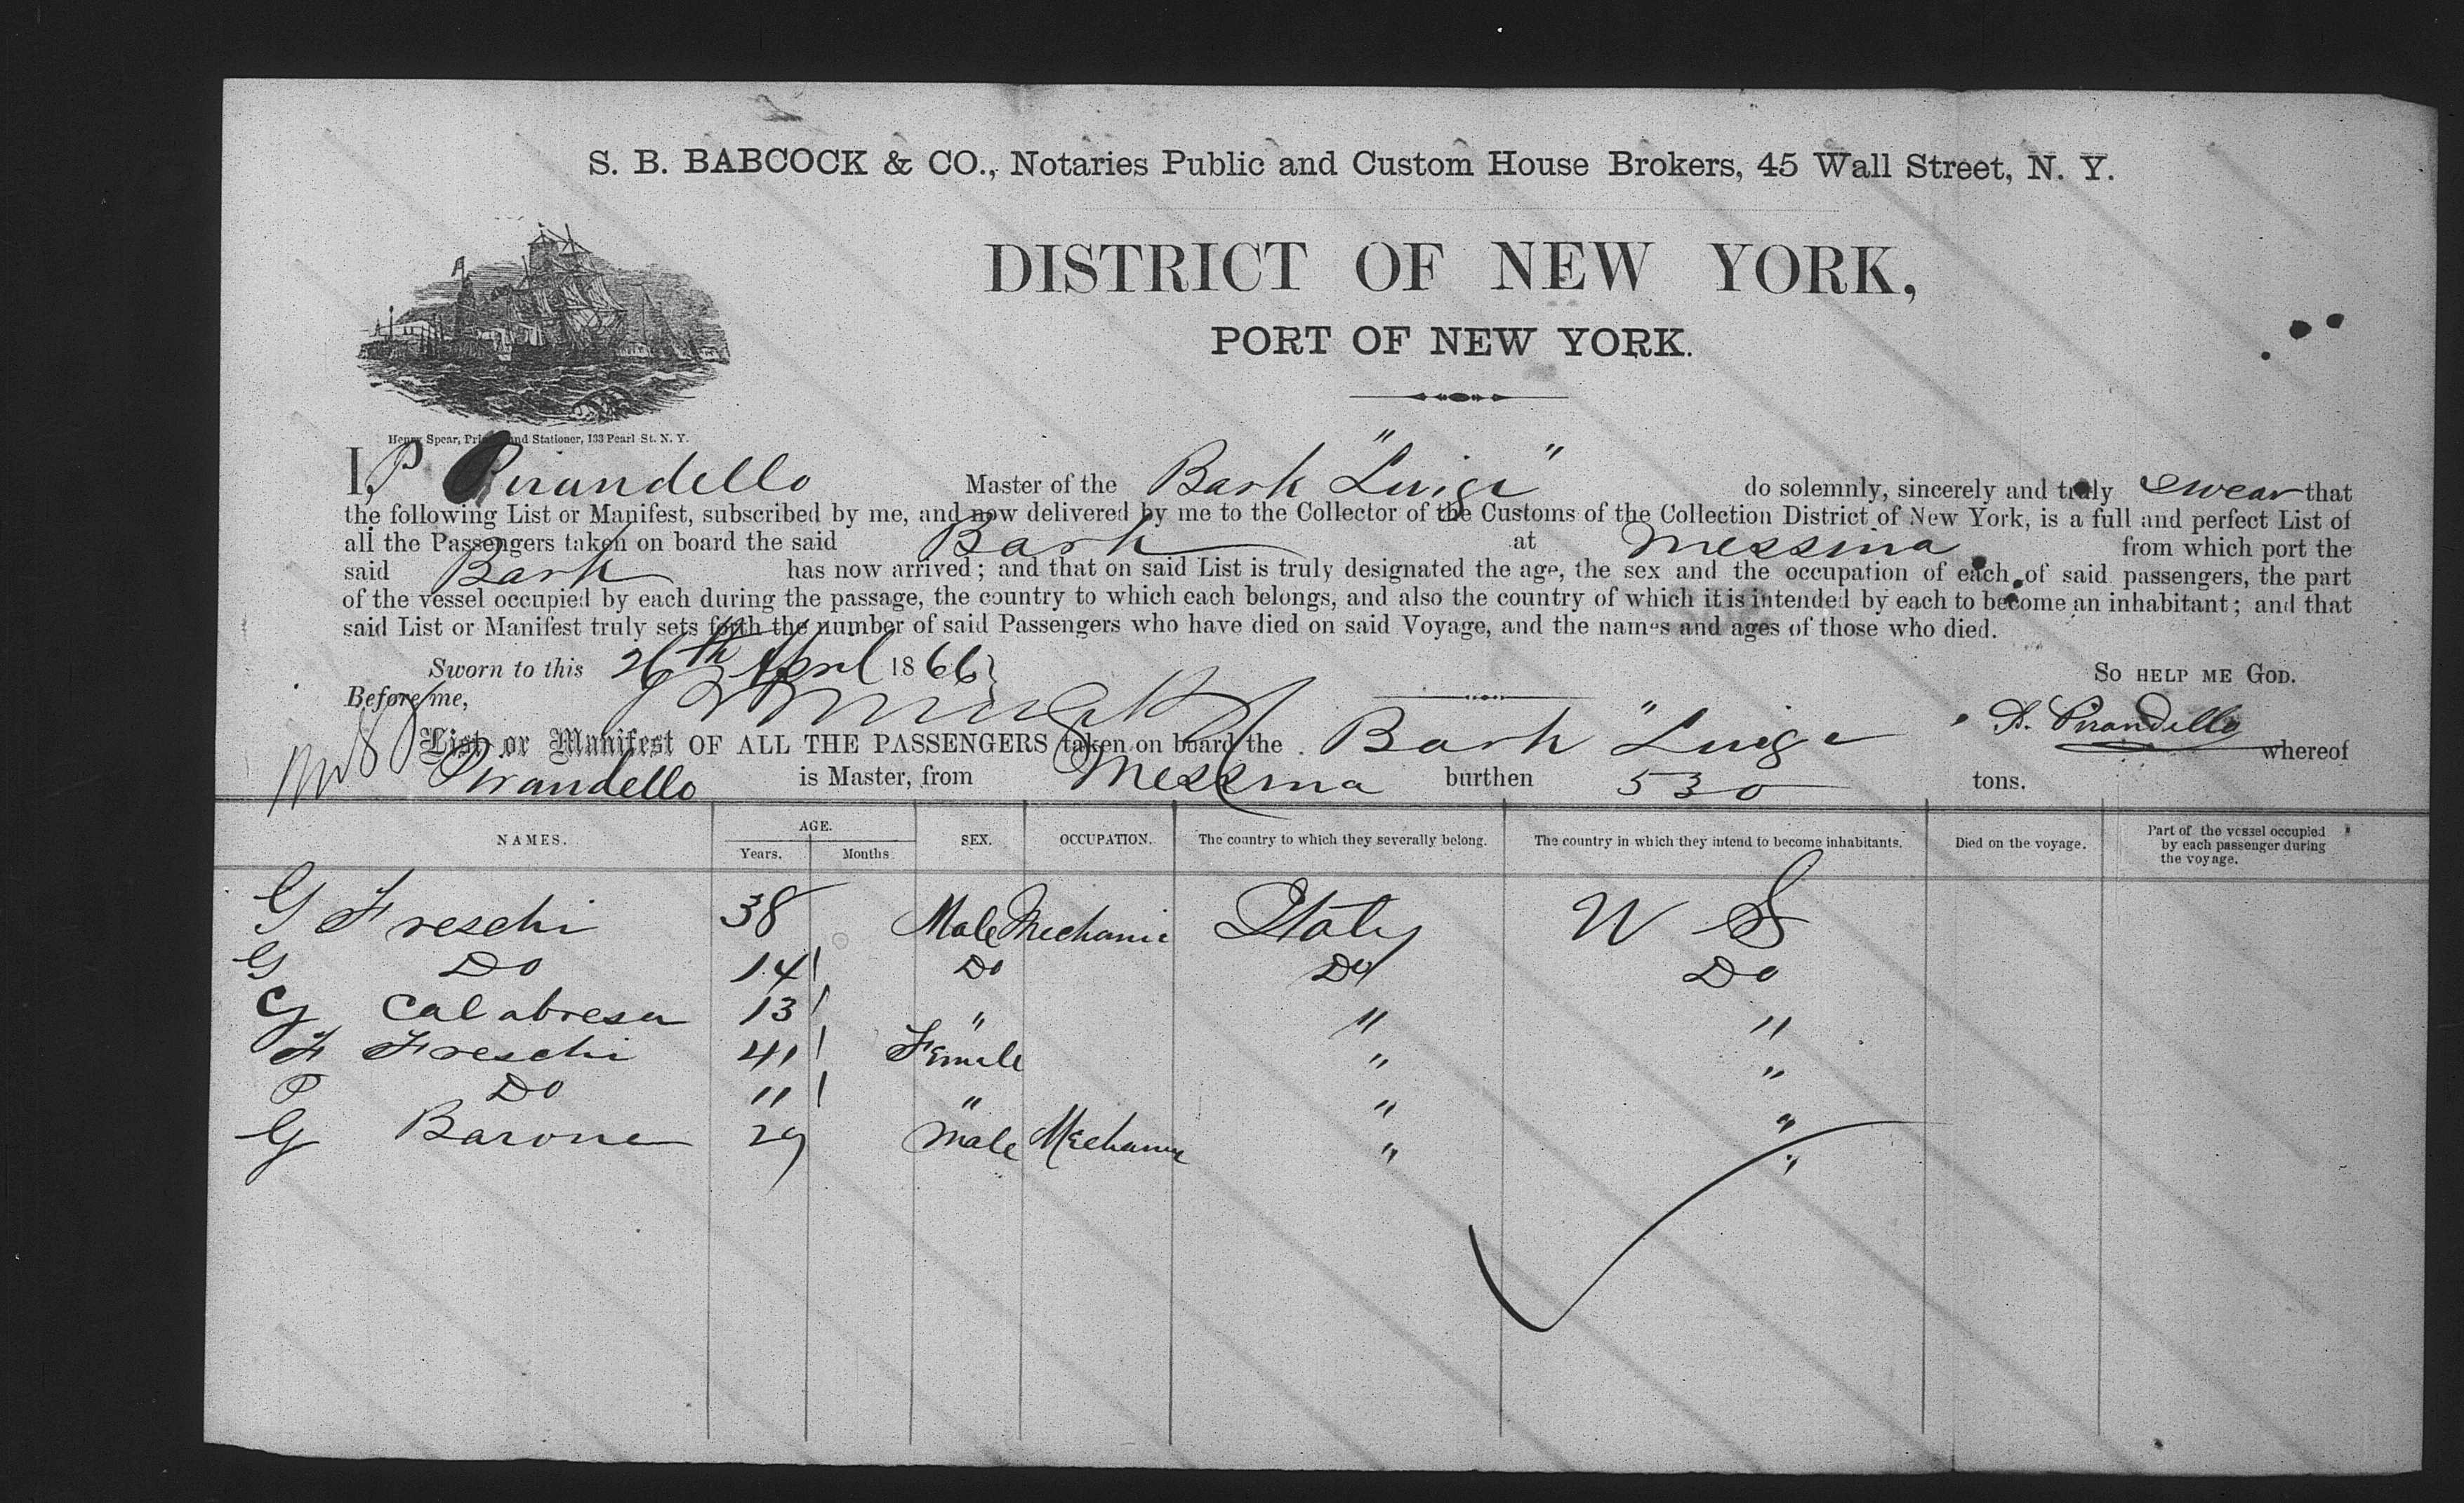 S. B. BABCOCK & CO., Notaries Public and Custom House Brokers, 45 Wall Street, N. Y.
DISTRICT OF NEW YORK,
PORT OF NEW YORK.
Henry Spear, Printer and Stationer, 133 Pearl St. N. Y.
I, P Pirandello Master of the Bark "Luigi" do solemnly, sincerely and truly swear that
the following List or Manifest, subscribed by me, and now delivered by me to the Collector of the Customs of the Collection District of New York, is a full and perfect List of
all the Passengers taken on board the said Bark at Messina from which port the
said Bark has now arrived; and that on said List is truly designated the age, the sex and the occupation of each of said passengers, the part
of the vessel occupied by each during the passage, the country to which each belongs, and also the country of which it is intended by each to become an inhabitant; and that
said List or Manifest truly sets forth the number of said Passengers who have died on said Voyage, and the names and ages of those who died.
Sworn to this 26th April 1866 So HELP ME GOD.
Before me,
Pirandello
List or Manifest OF ALL THE PASSENGERS taken on board the Bark "Luigi whereof
Pirandello is Master, from Messina burthen 530 tons.
NAMES. AGE. Years. Months. SEX. OCCUPATION. The country to which they severally belong. The country in which they intend to become inhabitants. Died on the voyage. Part of the vessel occupied by each passenger during the voyage.
G Freschi 38 Male Mechanic Italy U S
G Do 14 Do Do Do
G Calabresa 13 " " "
F Freschi 41 Female " "
P Do 11 " " "
G Barone 29 Male Mechanic " "